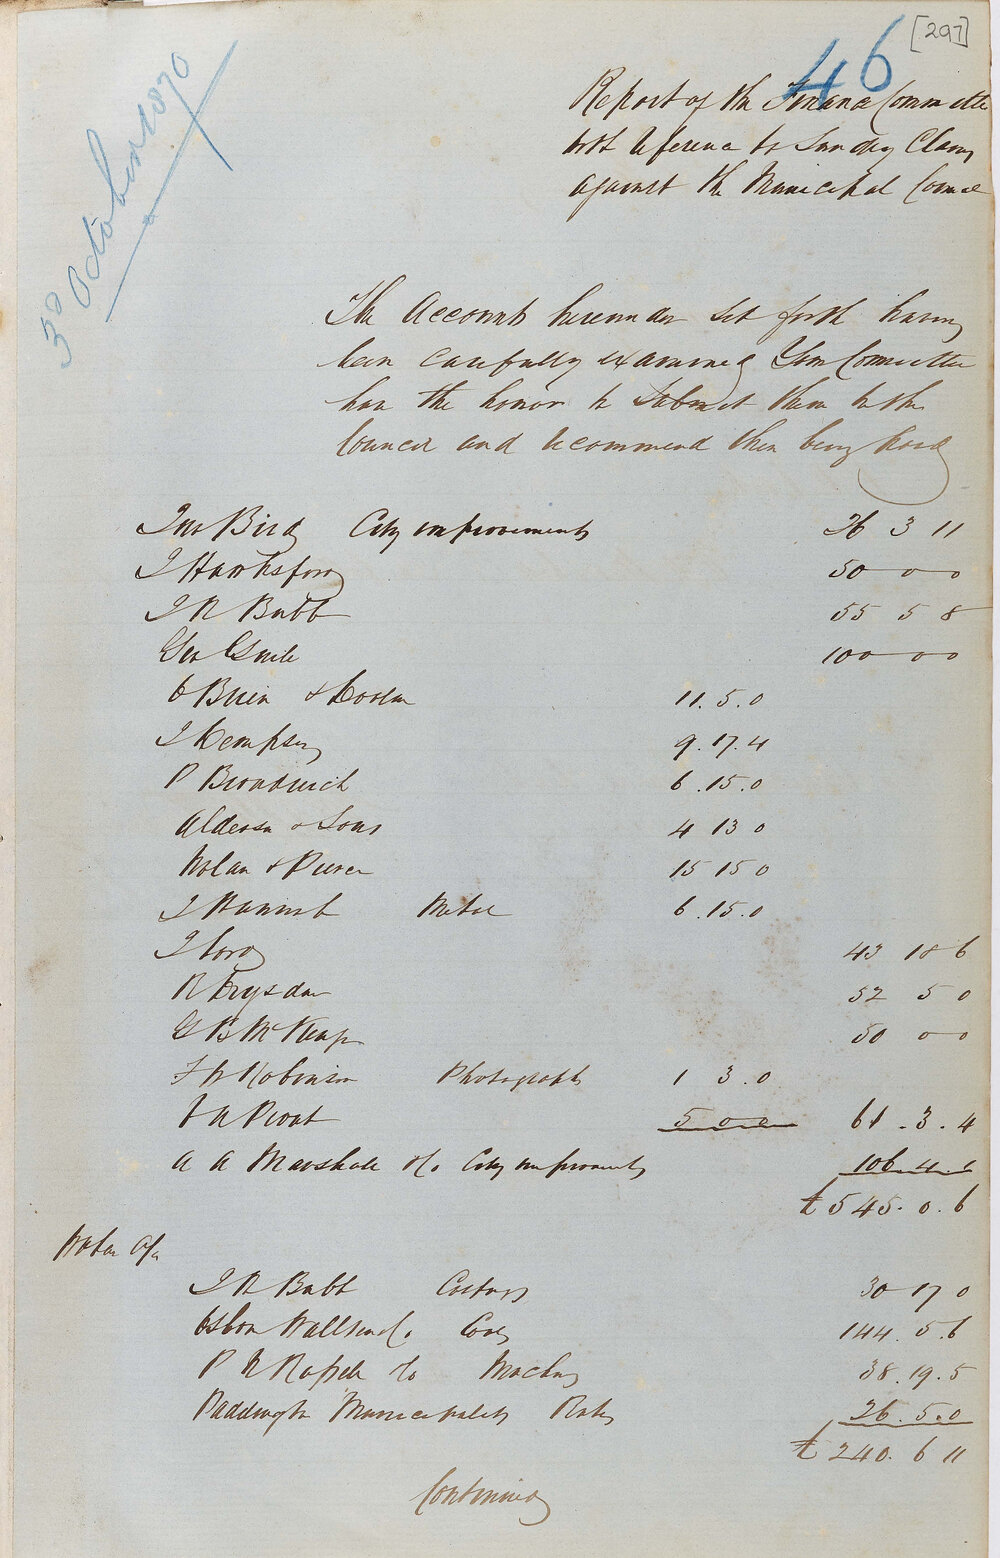 [297]
46
3d October 1870
Report of the Finance Committee
with reference to Sundry Claims
against the Municipal Council
The Accounts hereunder set forth having
been carefully examined Your Committee
has the honor to Submit them to the
Council and recommend their being paid
Jno Bird City improvements 26 3 11
J Hawksford 50 0 0
J R Bubb 55 5 8
Geo 100 0 0
O Brien & 11. 5. 0
J Dempsey 9. 17. 4
P Broderick 6. 15. 0
Alderson & Sons 4 13 0
Nolan & 15 15 0
J Metal 6. 15. 0
J 43 18 6
R Drysdale 52 5 0
G B 50 0 0
Robinson Photographs 1 3. 0
Prout 5 0 0 61. 3. 4
A A Marshall & Co. City improvements 106. 4. 6
£545. 0. 6
Water a/c
J R Bubb Castings 30 17 0
Osbon Wallsend Co. Coals 144. 5. 6
P N Russell & Co Machy 38. 19. 5
Paddington Municipality Rates 26. 5. 0
£240. 6 11
Continued